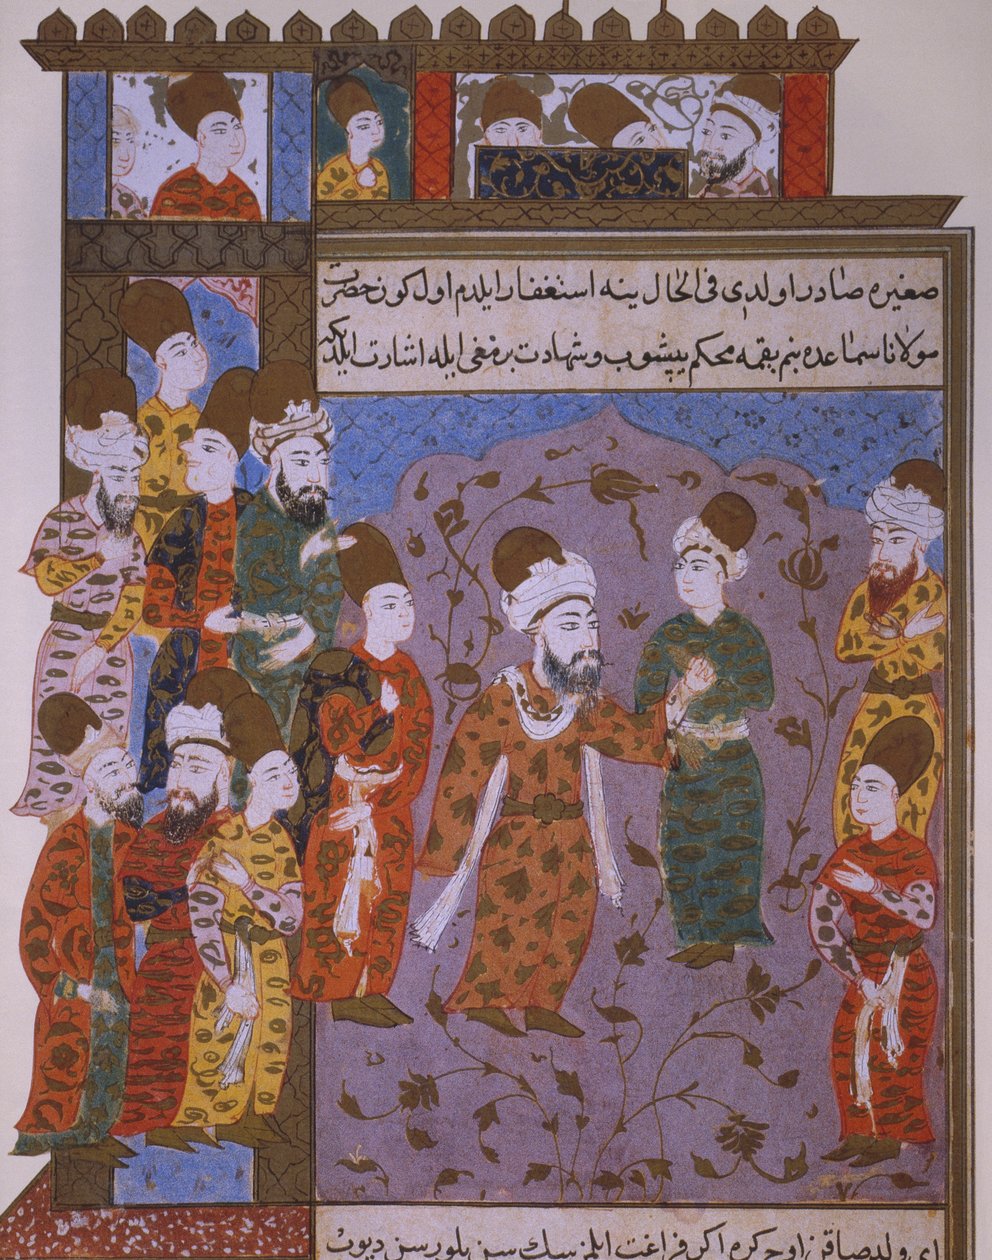 صغیره صادر اولدی فی الحال ینه استغفار ایلدم اول کون حضرت
مولانا سماعده بنم یقمه محکم یپشوب و شهادت برمغی ایله اشارت ایلدیکه
اکر فراغت ایلمزسك سن بلورسن دیوب